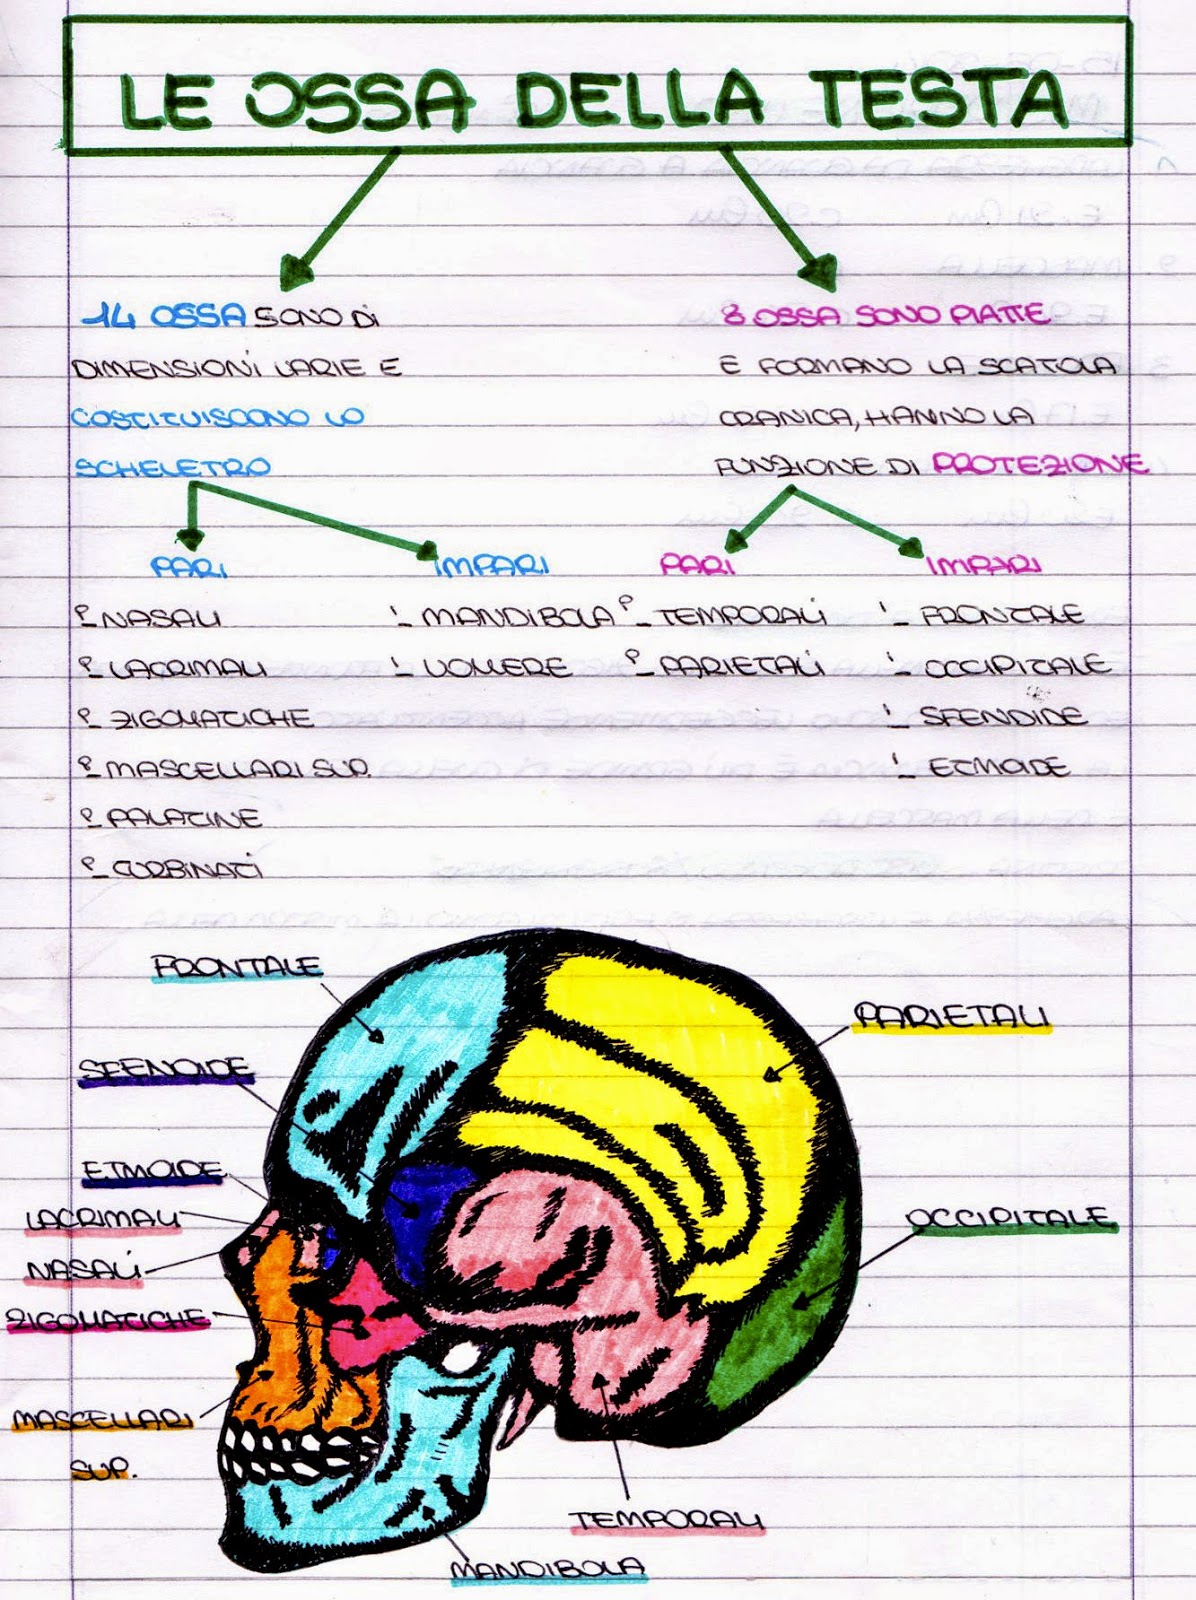 LE OSSA DELLA TESTA
14 OSSA SONO DI
DIMENSIONI VARIE E
COSTITUISCONO LO
SCHELETRO
8 OSSA SONO PIATTE
E FORMANO LA SCATOLA
CRANICA, HANNO LA
FUNZIONE DI PROTEZIONE
PARI
IMPARI
PARI
IMPARI
2_ NASALI
2_ LACRIMALI
2_ ZIGOMATICHE
2_ MASCELLARI SUP.
2_ PALATINE
2_ TURBINATI
1_ MANDIBOLA
1_ VOMERE
2_ TEMPORALI
2_ PARIETALI
1_ FRONTALE
1_ OCCIPITALE
1_ SFENOIDE
1_ ETMOIDE
FRONTALE
SFENOIDE
ETMOIDE
LACRIMALI
NASALI
ZIGOMATICHE
MASCELLARI
SUP.
PARIETALI
OCCIPITALE
TEMPORALI
MANDIBOLA